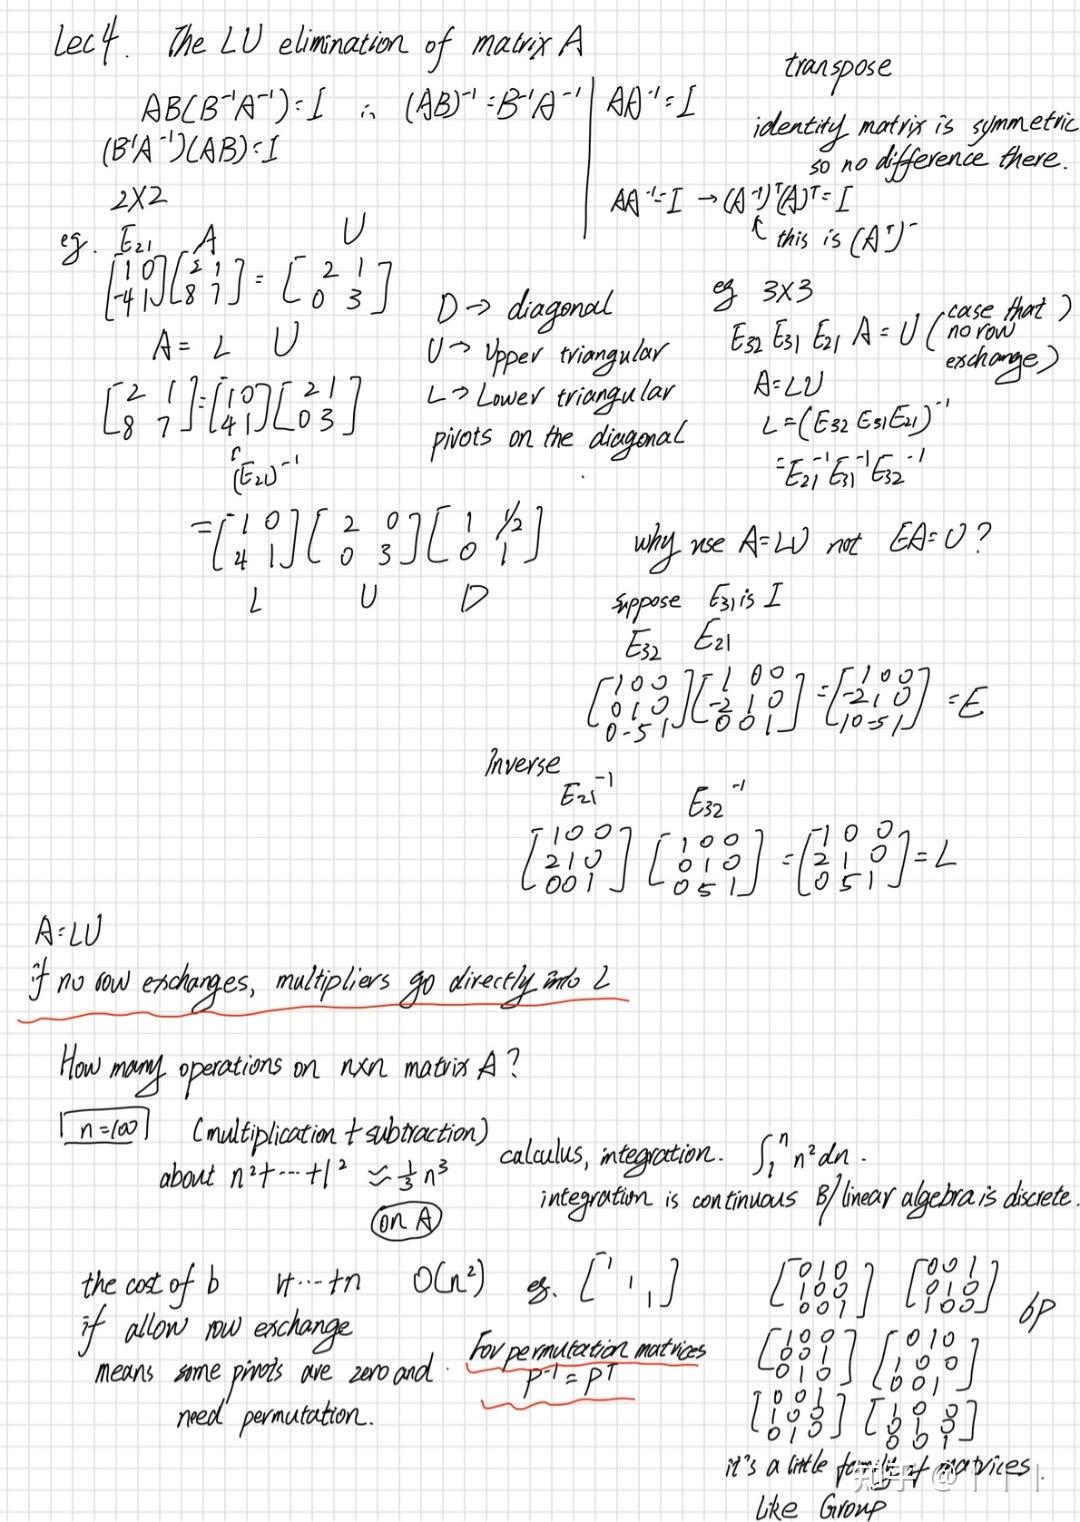 Lec 4. The LU elimination of matrix A
AB(B⁻¹A⁻¹)=I ∴ (AB)⁻¹=B⁻¹A⁻¹
(B⁻¹A⁻¹)(AB)=I
AA⁻¹=I
transpose
identity matrix is symmetric
so no difference there.
AA⁻¹=I → (A⁻¹)ᵀ(A)ᵀ=I
↑ this is (Aᵀ)⁻
2X2
eg. E21 A U
[1 0; -4 1][2 1; 8 7] = [2 1; 0 3]
A = L U
[2 1; 8 7] = [1 0; 4 1][2 1; 0 3]
↑
(E21)⁻¹
= [1 0; 4 1][2 0; 0 3][1 1/2; 0 1]
L U D
D → diagonal
U → Upper triangular
L → Lower triangular
pivots on the diagonal
eg 3X3
E32 E31 E21 A = U (case that no row exchange)
A=LU
L=(E32 E31 E21)⁻¹
=E21⁻¹E31⁻¹E32⁻¹
why use A=LU not EA=U?
suppose E31 is I
E32 E21
[1 0 0; 0 1 0; 0 -5 1][1 0 0; -2 1 0; 0 0 1] = [1 0 0; -2 1 0; 10 -5 1] = E
Inverse
E21⁻¹ E32⁻¹
[1 0 0; 2 1 0; 0 0 1][1 0 0; 0 1 0; 0 5 1] = [1 0 0; 2 1 0; 0 5 1] = L
A=LU
if no row exchanges, multipliers go directly into L
How many operations on nxn matrix A?
n=100 (multiplication + subtraction)
about n²+···+1² ≈ 1/3 n³
on A
calculus, integration. ∫₁ⁿ n²dn.
integration is continuous B/ linear algebra is discrete.
the cost of b 1+···+n O(n²)
if allow row exchange
means some pivots are zero and
need permutation.
eg. [1 1 1]
For permutation matrices
P⁻¹=Pᵀ
[0 1 0; 1 0 0; 0 0 1] [0 0 1; 0 1 0; 1 0 0]
6P
[1 0 0; 0 0 1; 0 1 0] [0 1 0; 1 0 0; 0 0 1]
[0 0 1; 1 0 0; 0 1 0] [1 0 0; 0 1 0; 0 0 1]
it's a little family of matrices.
Like Group
知乎